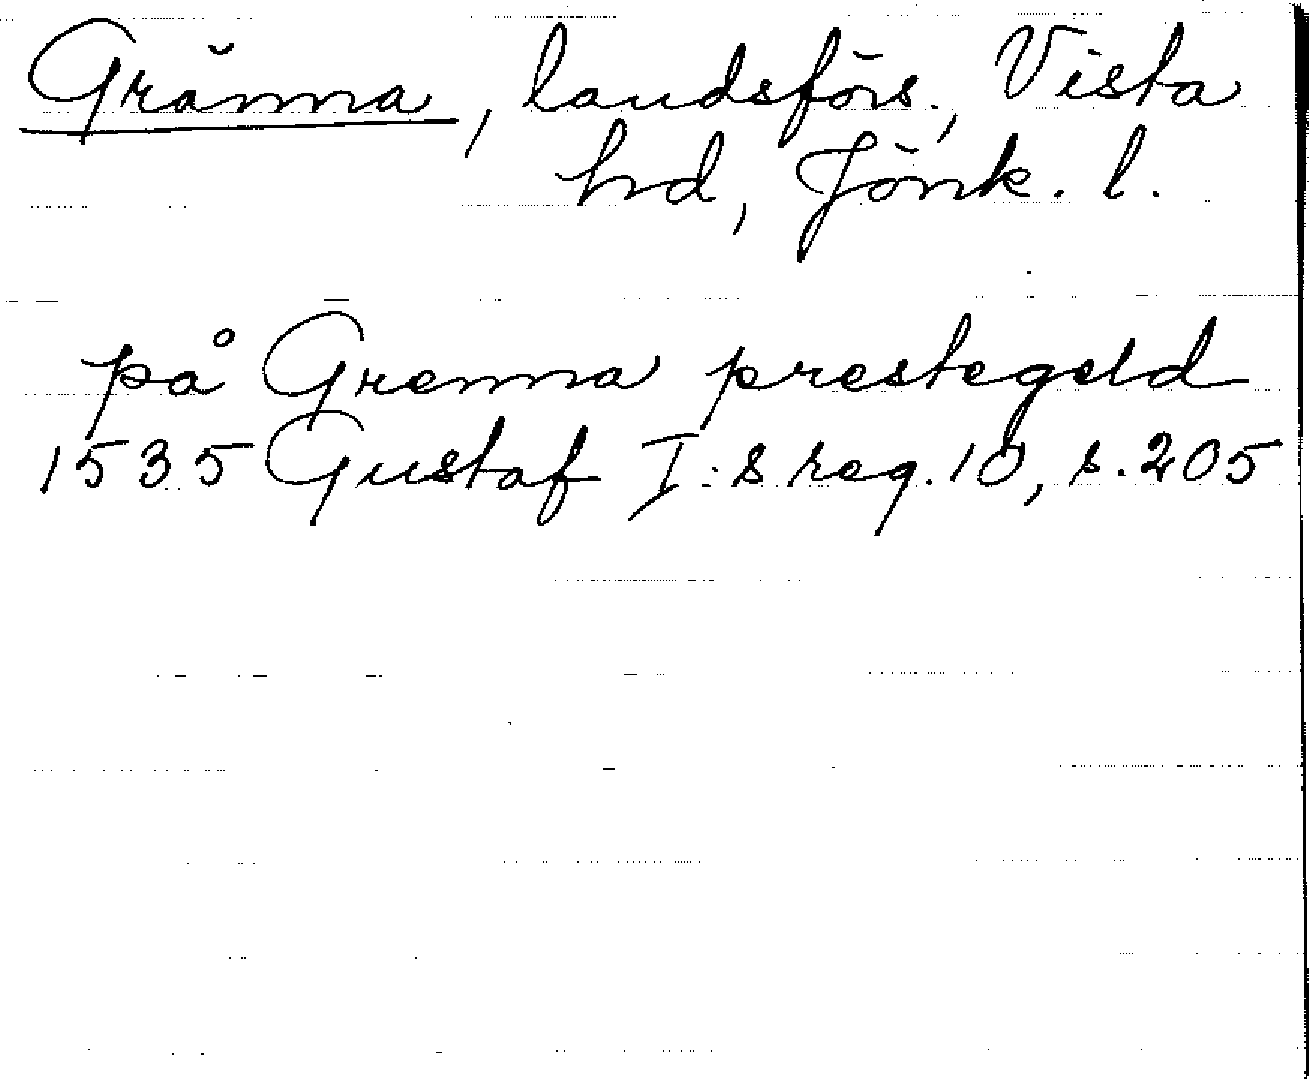 Gränna, landsförs., Vista
hd, Jönk. l.
på Grenna prestegeld
1535 Gustaf I:s reg. 10, s. 205